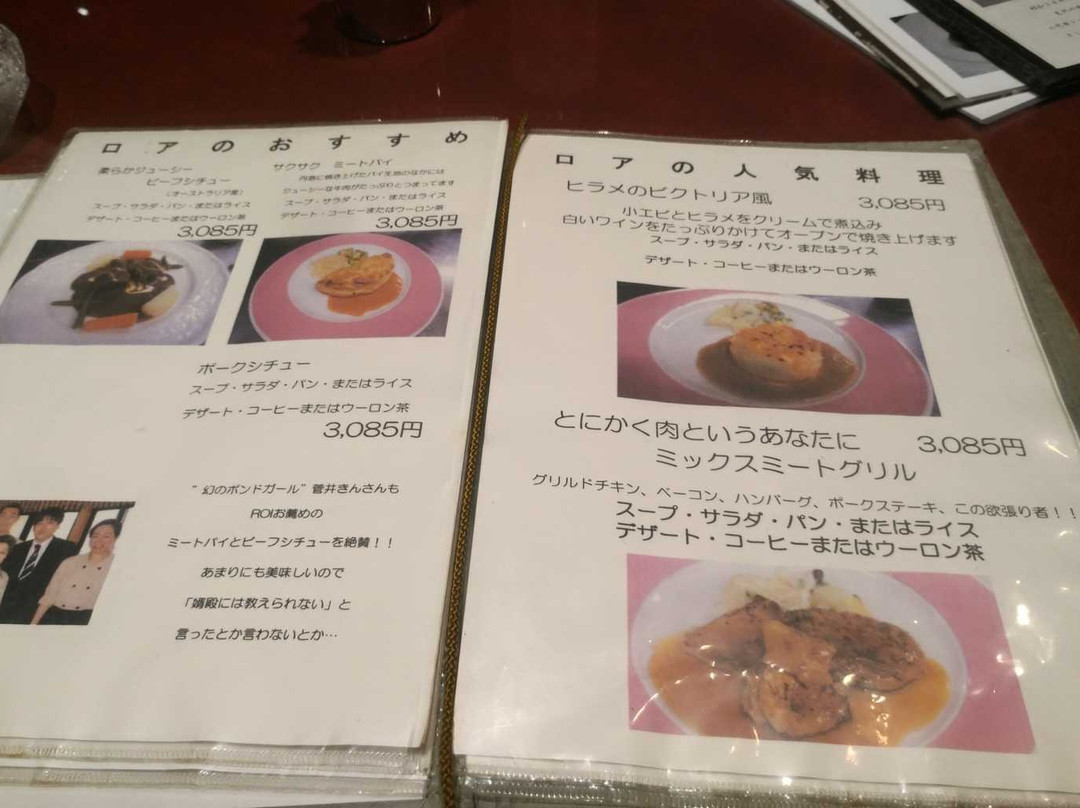 ロアのおすすめ
柔らかジューシー
ビーフシチュー
(オーストラリア産)
スープ・サラダ・パン・またはライス
デザート・コーヒーまたはウーロン茶
3,085円
サクサク ミートパイ
円盤に焼き上げたパイ生地のなかには
ジューシーな牛肉がたっぷりとつまってます
スープ・サラダ・パン・またはライス
デザート・コーヒーまたはウーロン茶
3,085円
ポークシチュー
スープ・サラダ・パン・またはライス
デザート・コーヒーまたはウーロン茶
3,085円
"幻のボンドガール"菅井きんさんも
ROIお薦めの
ミートパイとビーフシチューを絶賛!!
あまりにも美味しいので
「婿殿には教えられない」と
言ったとか言わないとか…
ロアの人気料理
ヒラメのビクトリア風 3,085円
小エビとヒラメをクリームで煮込み
白いワインをたっぷりかけてオーブンで焼き上げます
スープ・サラダ・パン・またはライス
デザート・コーヒーまたはウーロン茶
とにかく肉というあなたに 3,085円
ミックスミートグリル
グリルドチキン、ベーコン、ハンバーグ、ポークステーキ、この欲張り者!!
スープ・サラダ・パン・またはライス
デザート・コーヒーまたはウーロン茶